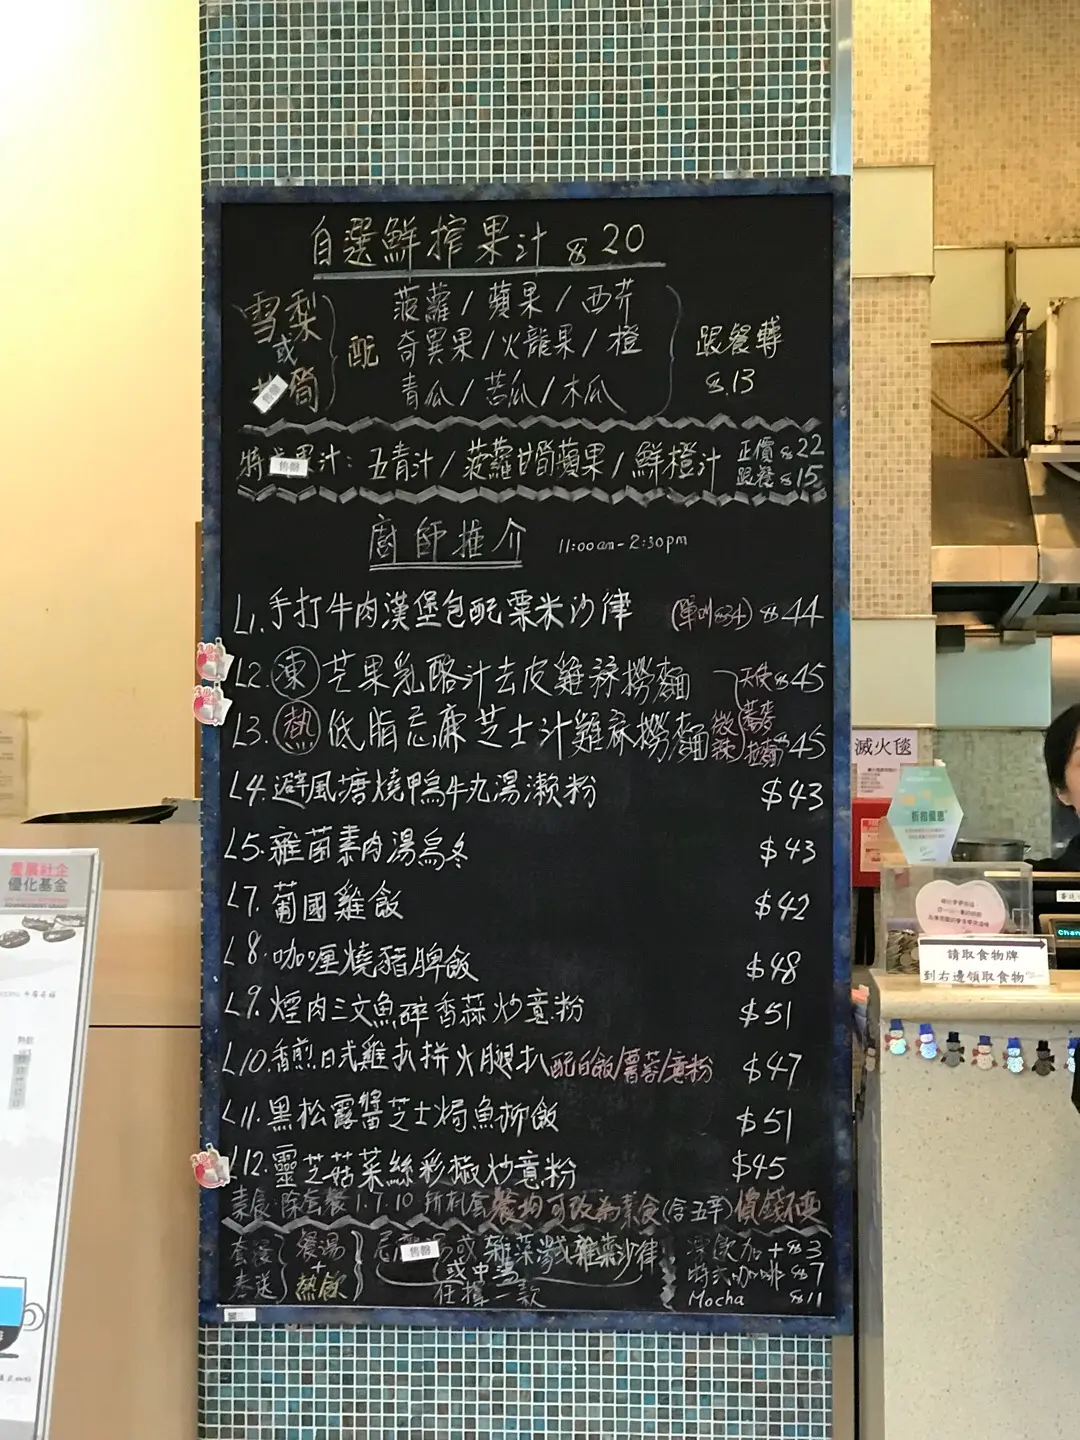 自選鮮榨果汁 $20
雪梨
或
筒
售罄
配
菠蘿/蘋果/西芹
奇異果/火龍果/橙
青瓜/苦瓜/木瓜
跟餐轉
$13
果汁: 五青汁/菠蘿甘筒蘋果/鮮橙汁
售罄
正價 $22
跟餐 $15
廚師推介 11:00am-2:30pm
L1. 手打牛肉漢堡包配粟米沙律 $44
L2. 凍 芒果乳酪汁去皮雞絲撈麵 天使 $45
L3. 熱 低脂忌廉芝士汁雞絲撈麵 微辣 蕎麥 拉麵 $45
L4. 避風塘燒鴨牛丸湯瀨粉 $43
L5. 雜菌素肉湯烏冬 $43
L7. 葡國雞飯 $42
L8. 咖喱燒豬脾飯 $48
L9. 煙肉三文魚碎香蒜炒意粉 $51
L10. 香煎日式雞扒拼火腿扒配白飯/薯蓉/意粉 $47
L11. 黑松露醬芝士焗魚柳飯 $51
L12. 靈芝菇菜絲彩椒炒意粉 $45
素食:除套餐1.7.10所有套餐均可改為素食(含五辛)價錢不變
餐湯
+
熱飲
售罄
或雜菜湯或雜菜沙律
任擇一款
凍飲加+$3
特式咖啡 $7
Mocha $11
滅火毯
折扣優惠
請取食物牌
到右邊領取食物
優化基金